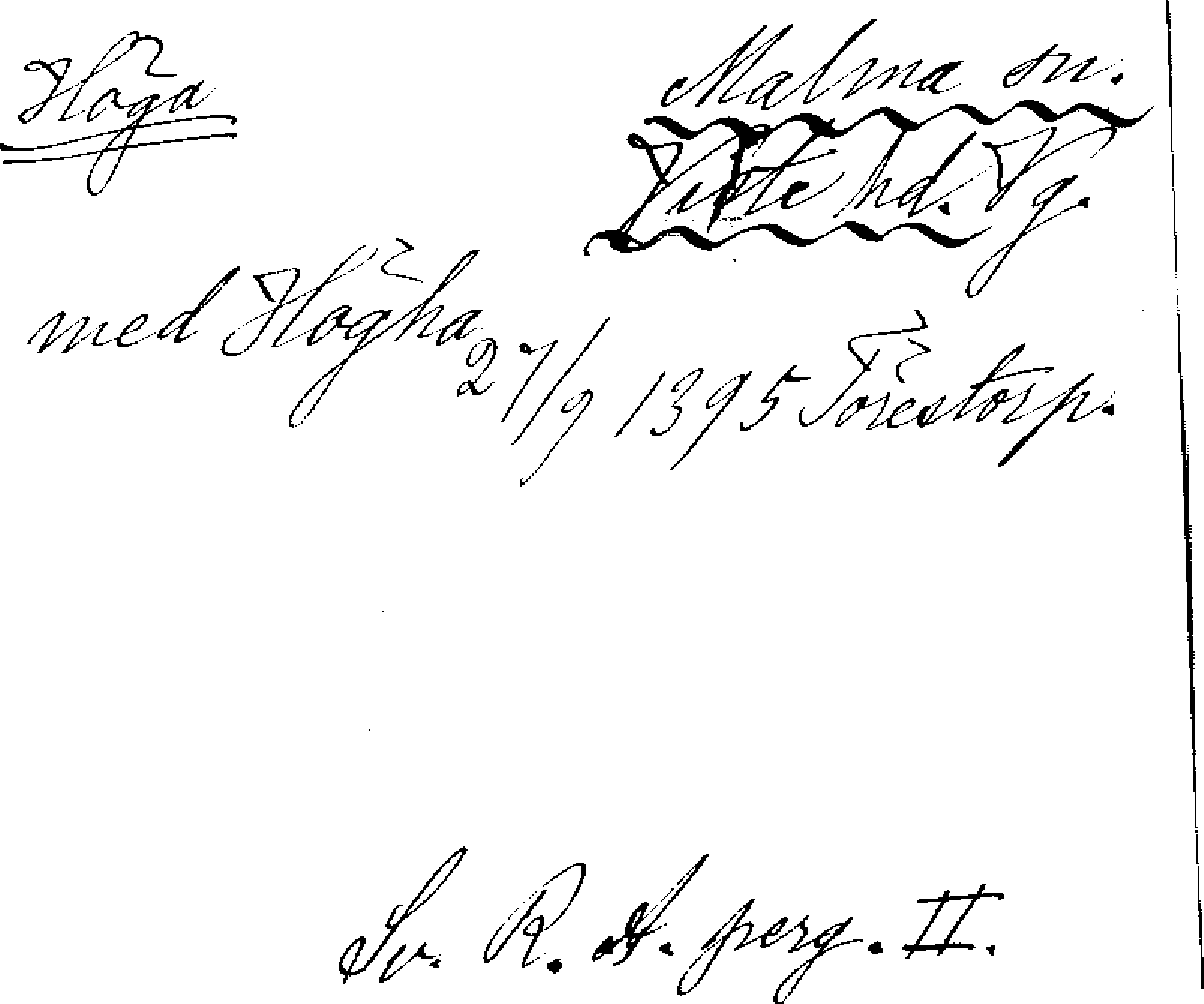 Höga
Malma sn.
Viste hd. Vg.
med Högha
27/9 1395 Torestorp.
Sv. R. A. perg. II.